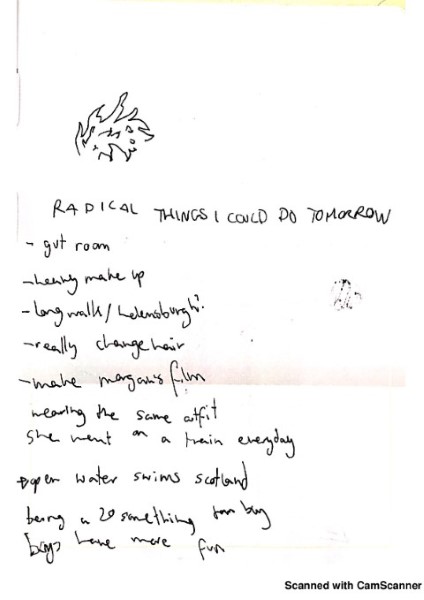 RADICAL THINGS I COULD DO TOMORROW
- gut room
- heavy make up
- long walk / helensburgh?
- really change hair
- make morgan's film
wearing the same outfit
she went on a train everyday
open water swims scotland
being a 20 something tom boy
boys have more fun
Scanned with CamScanner